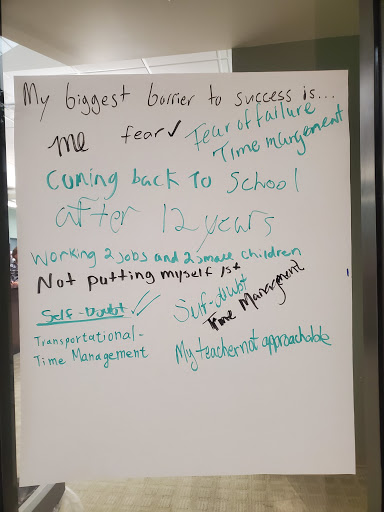 My biggest barrier to success is...
me
fear✓
Fear of failure
Time mangement
Coming back to School
after 12 years
Working 2 jobs and 2 small children
Not putting myself 1st
Self-Doubt ✓✓
Transportational-
Time Management
Self-doubt
Time Management
My teacher not approachable